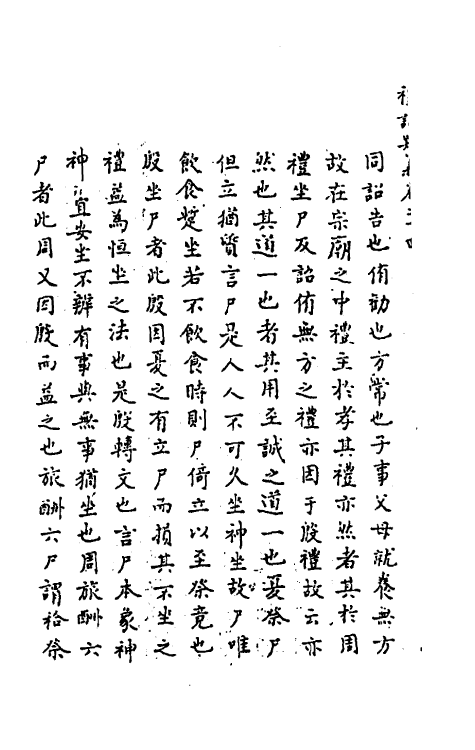 同詔告也侑勸也方常也子事父母就養無方
故在宗廟之中禮主於孝其禮亦然者其於周
禮坐尸及詔侑無方之禮亦因于殷禮故云亦
然也其道一也者其用至誠之道一也夏祭尸
但立猶質言尸是人人不可久坐神坐故尸唯
飲食蹔坐若不飲食時則尸倚立以至祭竟也
殷坐尸者此殷因夏之有立尸而損其不坐之
禮益為恒坐之法也是殷轉文也言尸本象神
神宜安坐不辨有事與無事猶坐也周旅酬六
尸者此周又因殷而益之也旅酬六尸謂祫祭